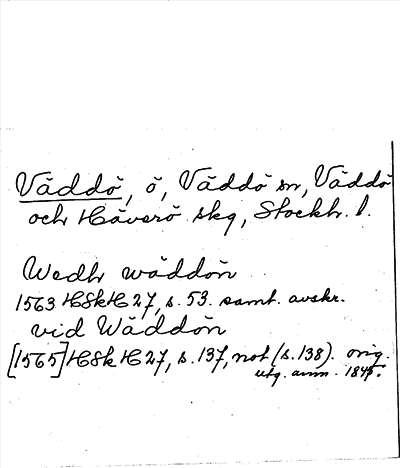 Väddö, ö, Väddö sn, Väddö
och Häverö skg, Stockh. l.
Wedh wäddön
1563 HSkH 27, s. 53. samt. avskr.
vid Wäddön
[1565] HSkH 27, s. 137, not (s. 138). orig.
utg. anm. 1845.